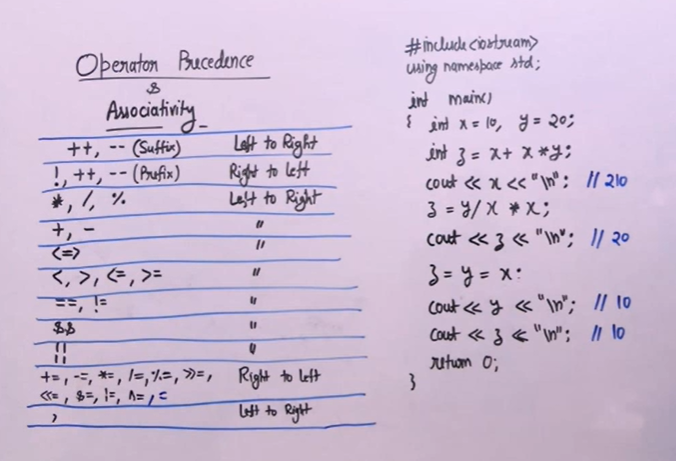 Operator Precedence
&
Associativity
++, -- (Suffix) Left to Right
!, ++, -- (Prefix) Right to Left
*, /, % Left to Right
+, - "
<=> "
<, >, <=, >= "
==, != "
&& "
|| "
+=, -=, *=, /=, %=, >>=, Right to Left
<<=, &=, |=, ^=, =
, Left to Right
#include <iostream>
using namespace std;
int main()
{ int x = 10, y = 20;
int z = x + x * y;
cout << x << "\n"; // 210
z = y / x * x;
cout << z << "\n"; // 20
z = y = x;
cout << y << "\n"; // 10
cout << z << "\n"; // 10
return 0;
}